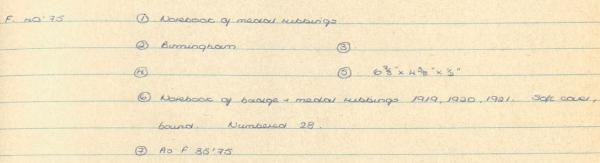 F. 40'75 ① Notebook of medal rubbings
② Birmingham ③
④ ⑤ 6 ⅞" x 4 ⅜" x ½"
⑥ Notebook of badge + medal rubbings 1919, 1920, 1921. Soft cover,
bound. Numbered 28.
⑦ As F 35'75